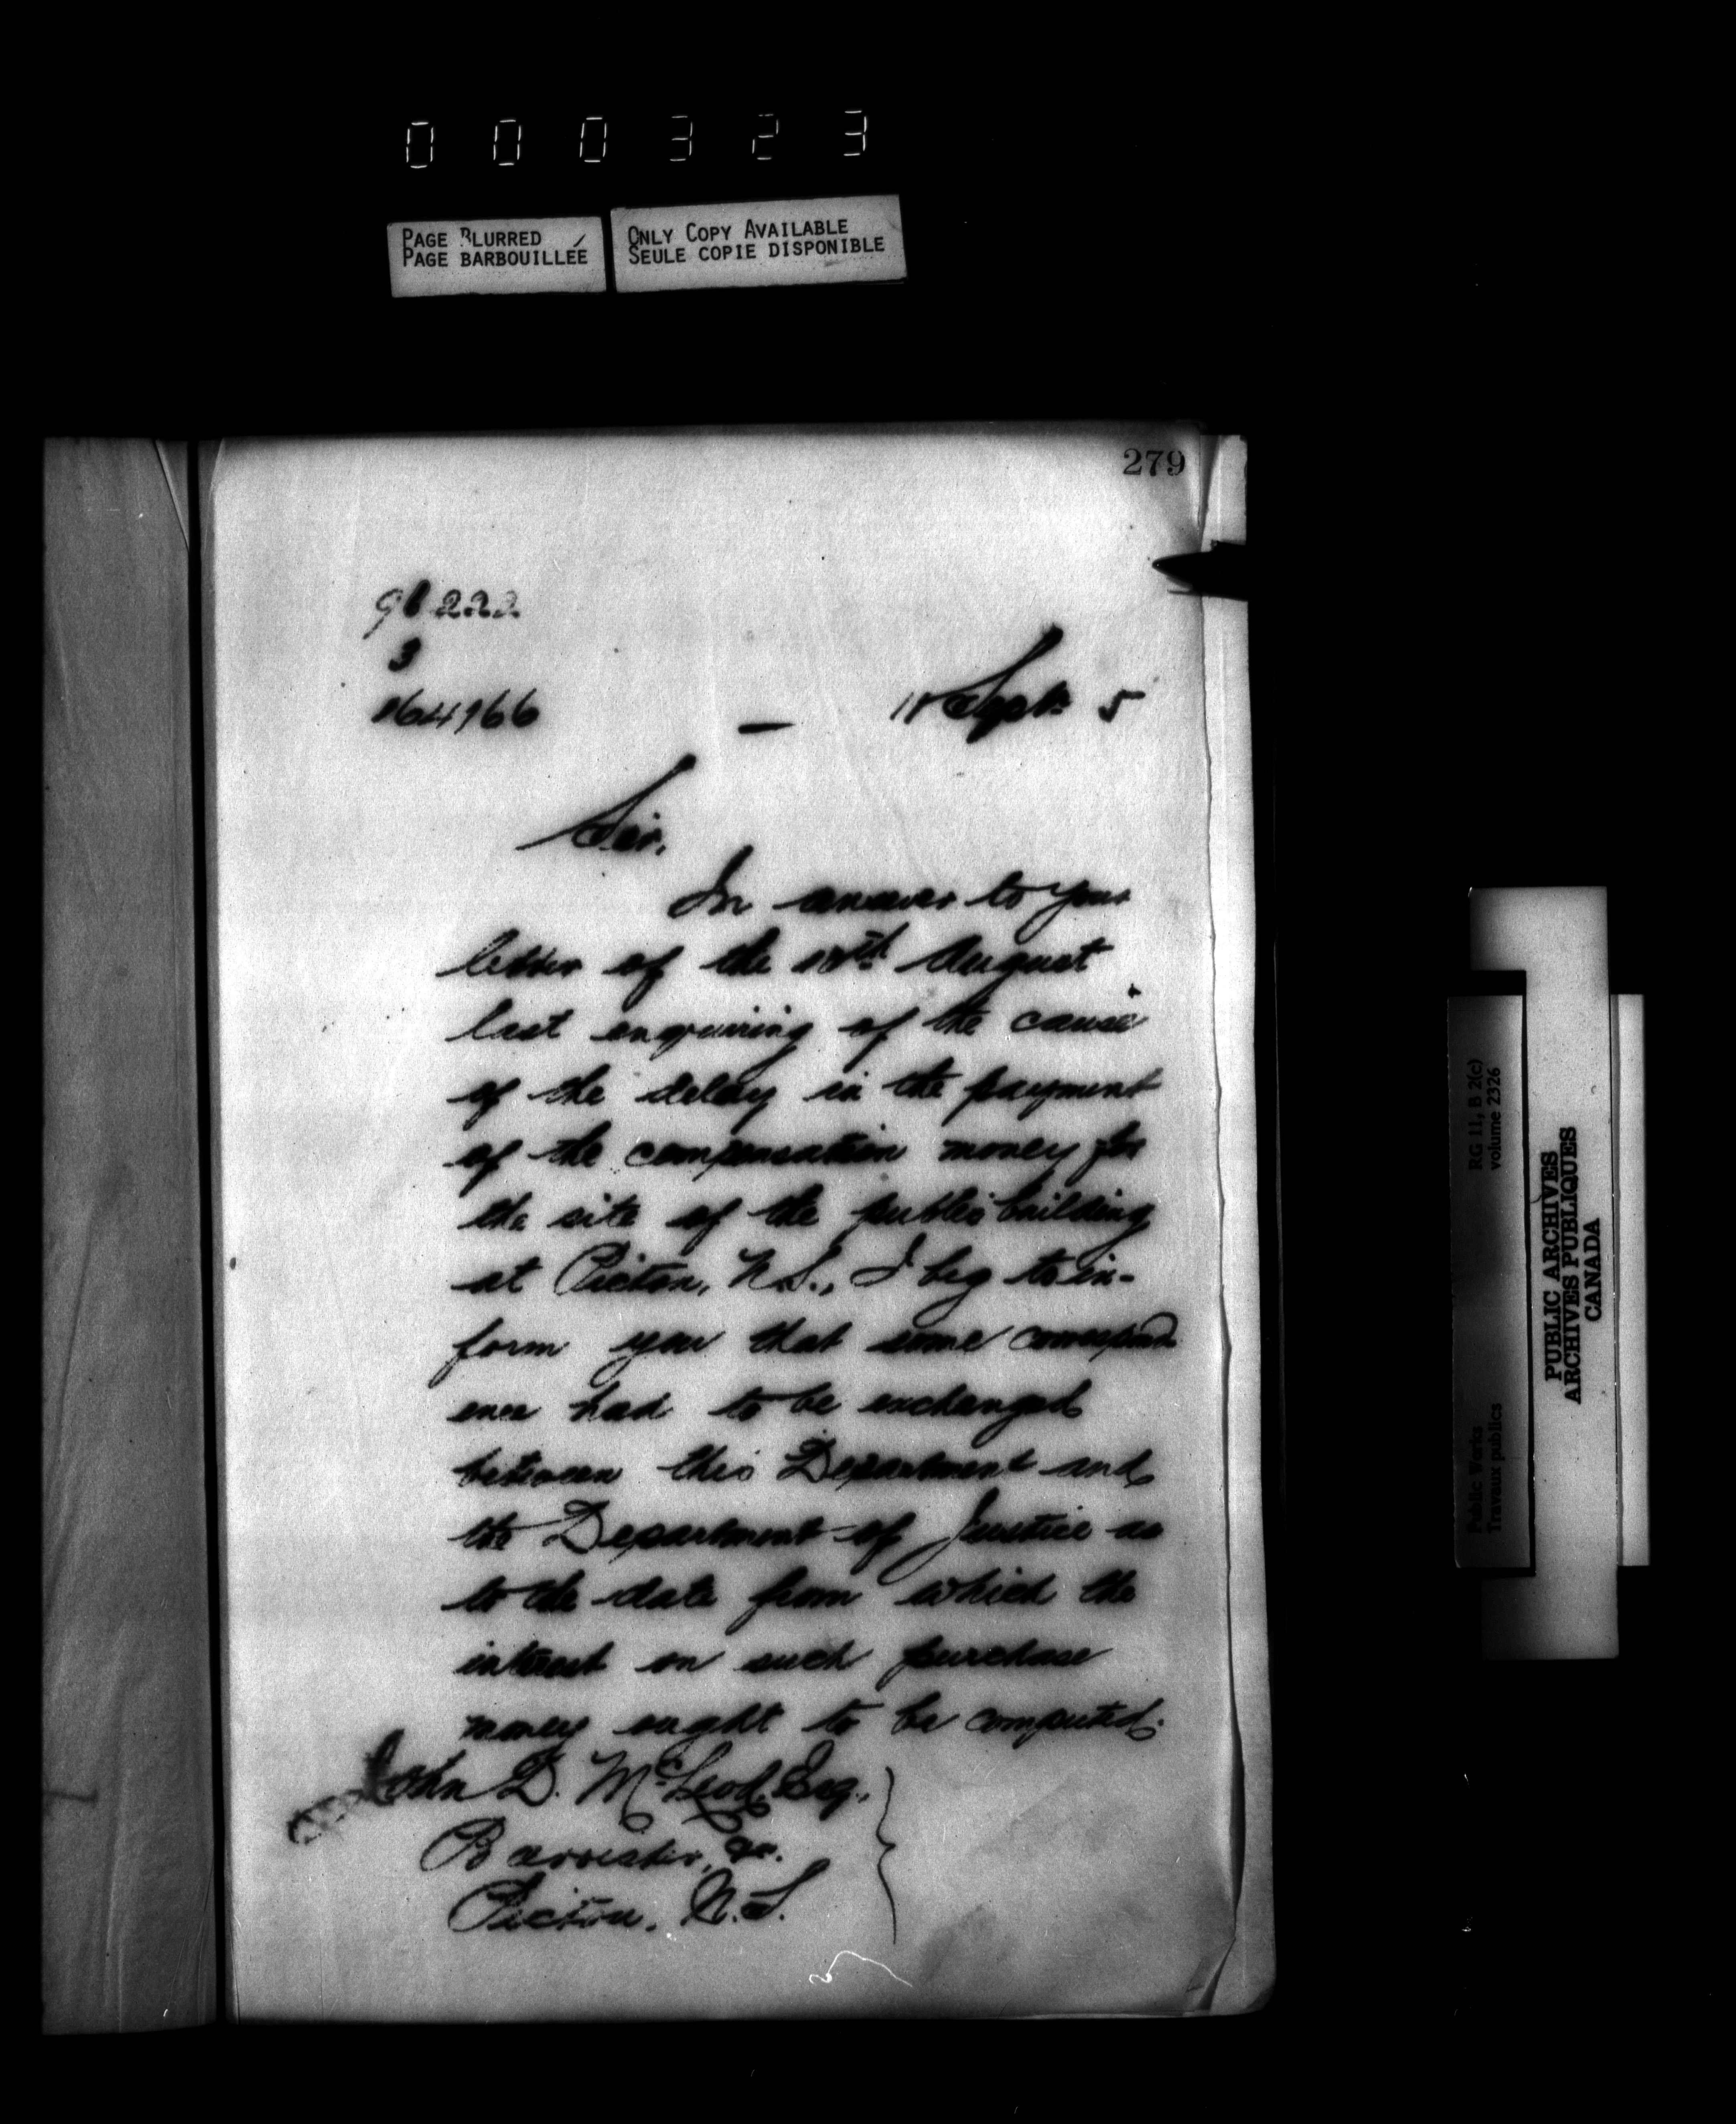 000323
PAGE BLURRED
PAGE BARBOUILLÉE
ONLY COPY AVAILABLE
SEULE COPIE DISPONIBLE
279
222
3
Sept. 5
Sir,
In answer to your
letter of the August
last enquiring of the cause
of the delay in the payment
of the compensation money for
the site of the public building
at Pictou, N.S., I beg to in-
form you that some correspond
ence had to be exchanged
between this Department and
the Department of Justice as
to the date from which the
interest on such purchase
money ought to be computed.
John D. McLeod, Esq.,
Barrister, &c.
Pictou, N.S.
RG 11, B 2(c)
volume 2326
Public Works
Travaux publics
PUBLIC ARCHIVES
ARCHIVES PUBLIQUES
CANADA